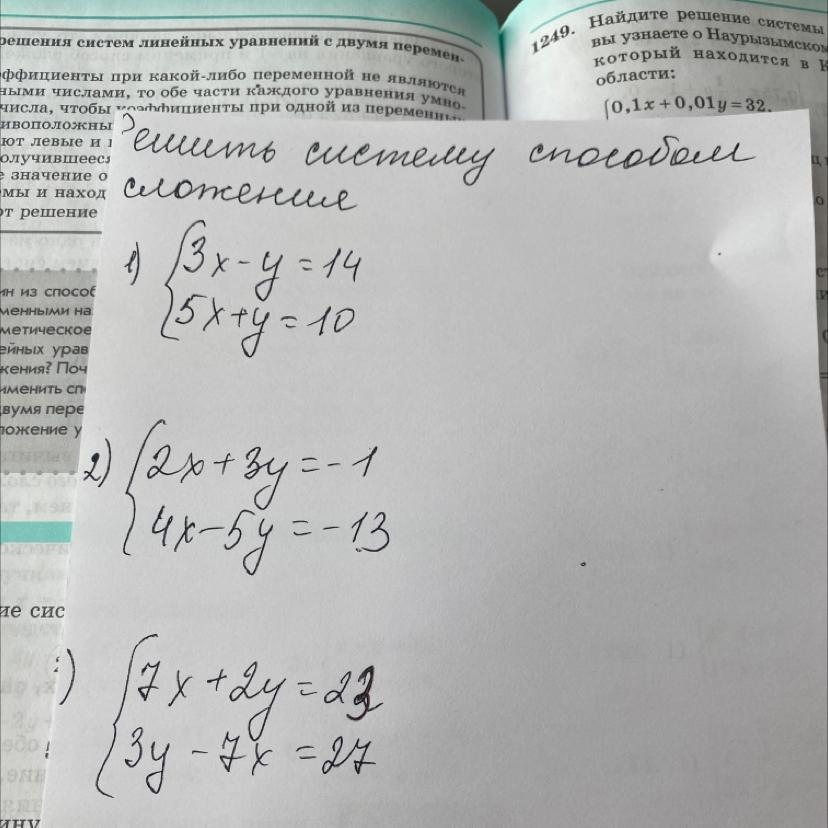 решения систем линейных уравнений с двумя перемен-
коэффициенты при какой-либо переменной не являются
ными числами, то обе части каждого уравнения умно-
числа, чтобы коэффициенты при одной из переменных
ют левые и
е значение
мы и наход
от решение
1249. Найдите решение системы
вы узнаете о Наурызымском
который находится в К
области:
0,1x + 0,01y = 32,
Решить систему способом
сложения
1) 3x - y = 14
5x + y = 10
ин из способ
менными на
метическое
ейных урав
жения? Поч
именить сп
двумя пере
ложение у
2) 2x + 3y = -1
4x - 5y = -13
ие сис
) 7x + 2y = 23
3y - 7x = 27
ину